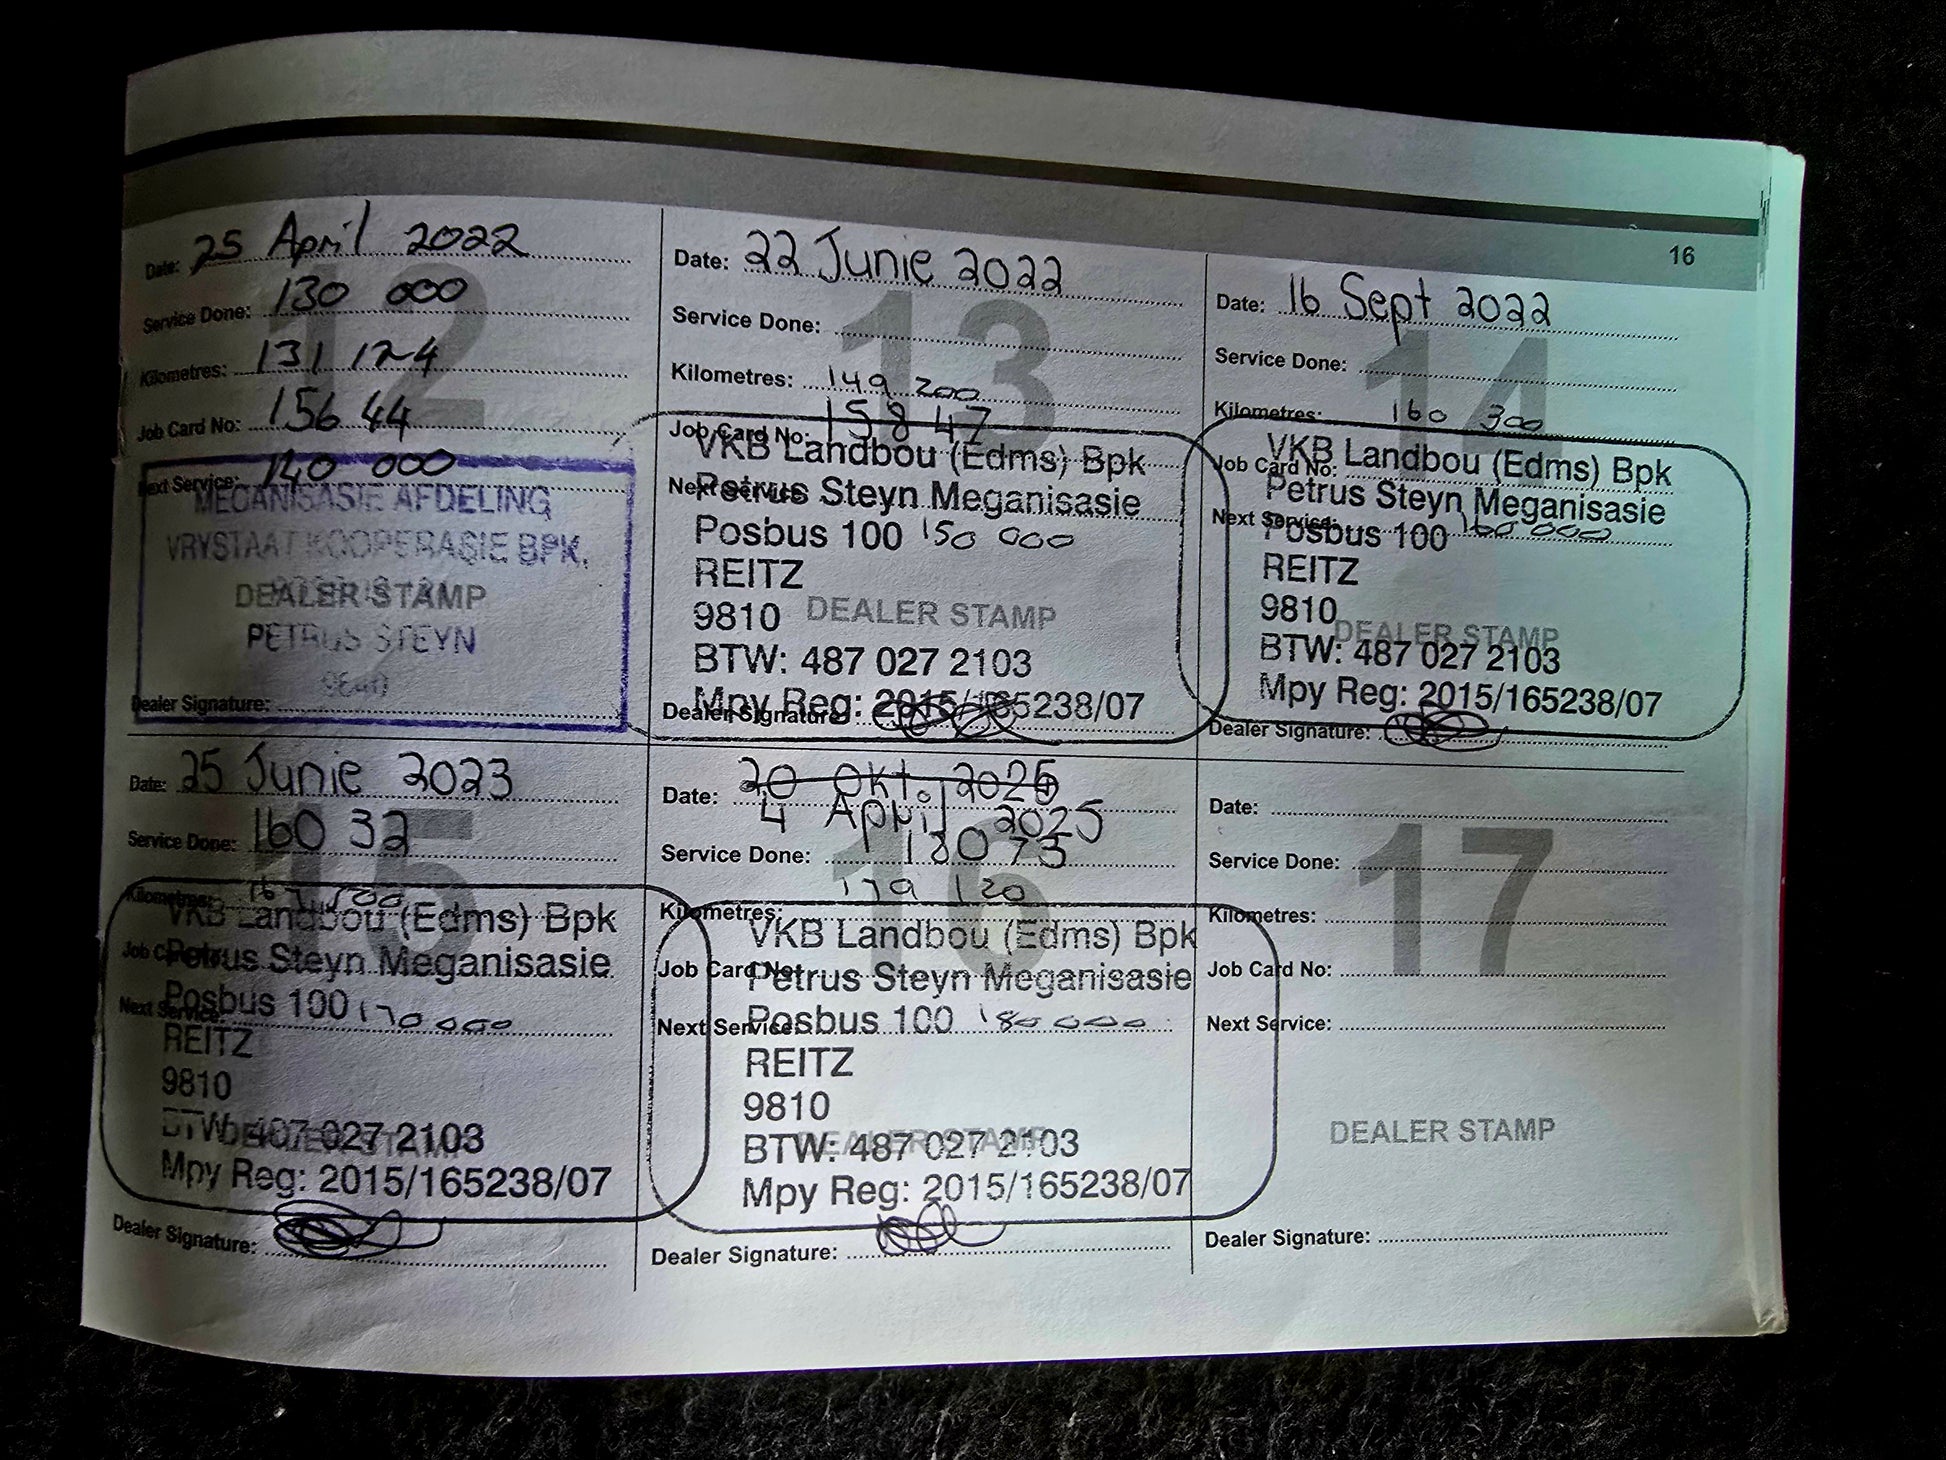 16
Date: 25 April 2022
Service Done: 130 000
Kilometres: 131 124
Job Card No: 156 44
Next Service: 140 000
12
MEGANISASIE AFDELING
VRYSTAAT KOOPERASIE BPK.
DEALER STAMP
PETRUS STEYN
Dealer Signature:
Date: 22 Junie 2022
Service Done:
Kilometres: 149 200
Job Card No: 158 47
13
VKB Landbou (Edms) Bpk
Petrus Steyn Meganisasie
Next Service:
Posbus 100 150 000
REITZ
9810
DEALER STAMP
BTW: 487 027 2103
Mpy Reg: 2015/165238/07
Dealer Signature:
Date: 16 Sept 2022
Service Done:
Kilometres: 160 300
14
VKB Landbou (Edms) Bpk
Job Card No:
Petrus Steyn Meganisasie
Next Service: 160 000
Posbus 100
REITZ
9810
DEALER STAMP
BTW: 487 027 2103
Mpy Reg: 2015/165238/07
Dealer Signature:
Date: 25 Junie 2023
Service Done: 160 32
15
Kilometres:
VKB Landbou (Edms) Bpk
Job
Petrus Steyn Meganisasie
Next Service:
Posbus 100 170 000
REITZ
9810
BTW: 487 027 2103
Mpy Reg: 2015/165238/07
Dealer Signature:
20 Okt. 2025
Date: 4 April 2025
Service Done: 18073
179 120
16
Kilometres:
VKB Landbou (Edms) Bpk
Job Card No:
Petrus Steyn Meganisasie
Next Service:
Posbus 100 180 000
REITZ
9810
DEALER STAMP
BTW: 487 027 2103
Mpy Reg: 2015/165238/07
Dealer Signature:
Date:
Service Done:
17
Kilometres:
Job Card No:
Next Service:
DEALER STAMP
Dealer Signature: